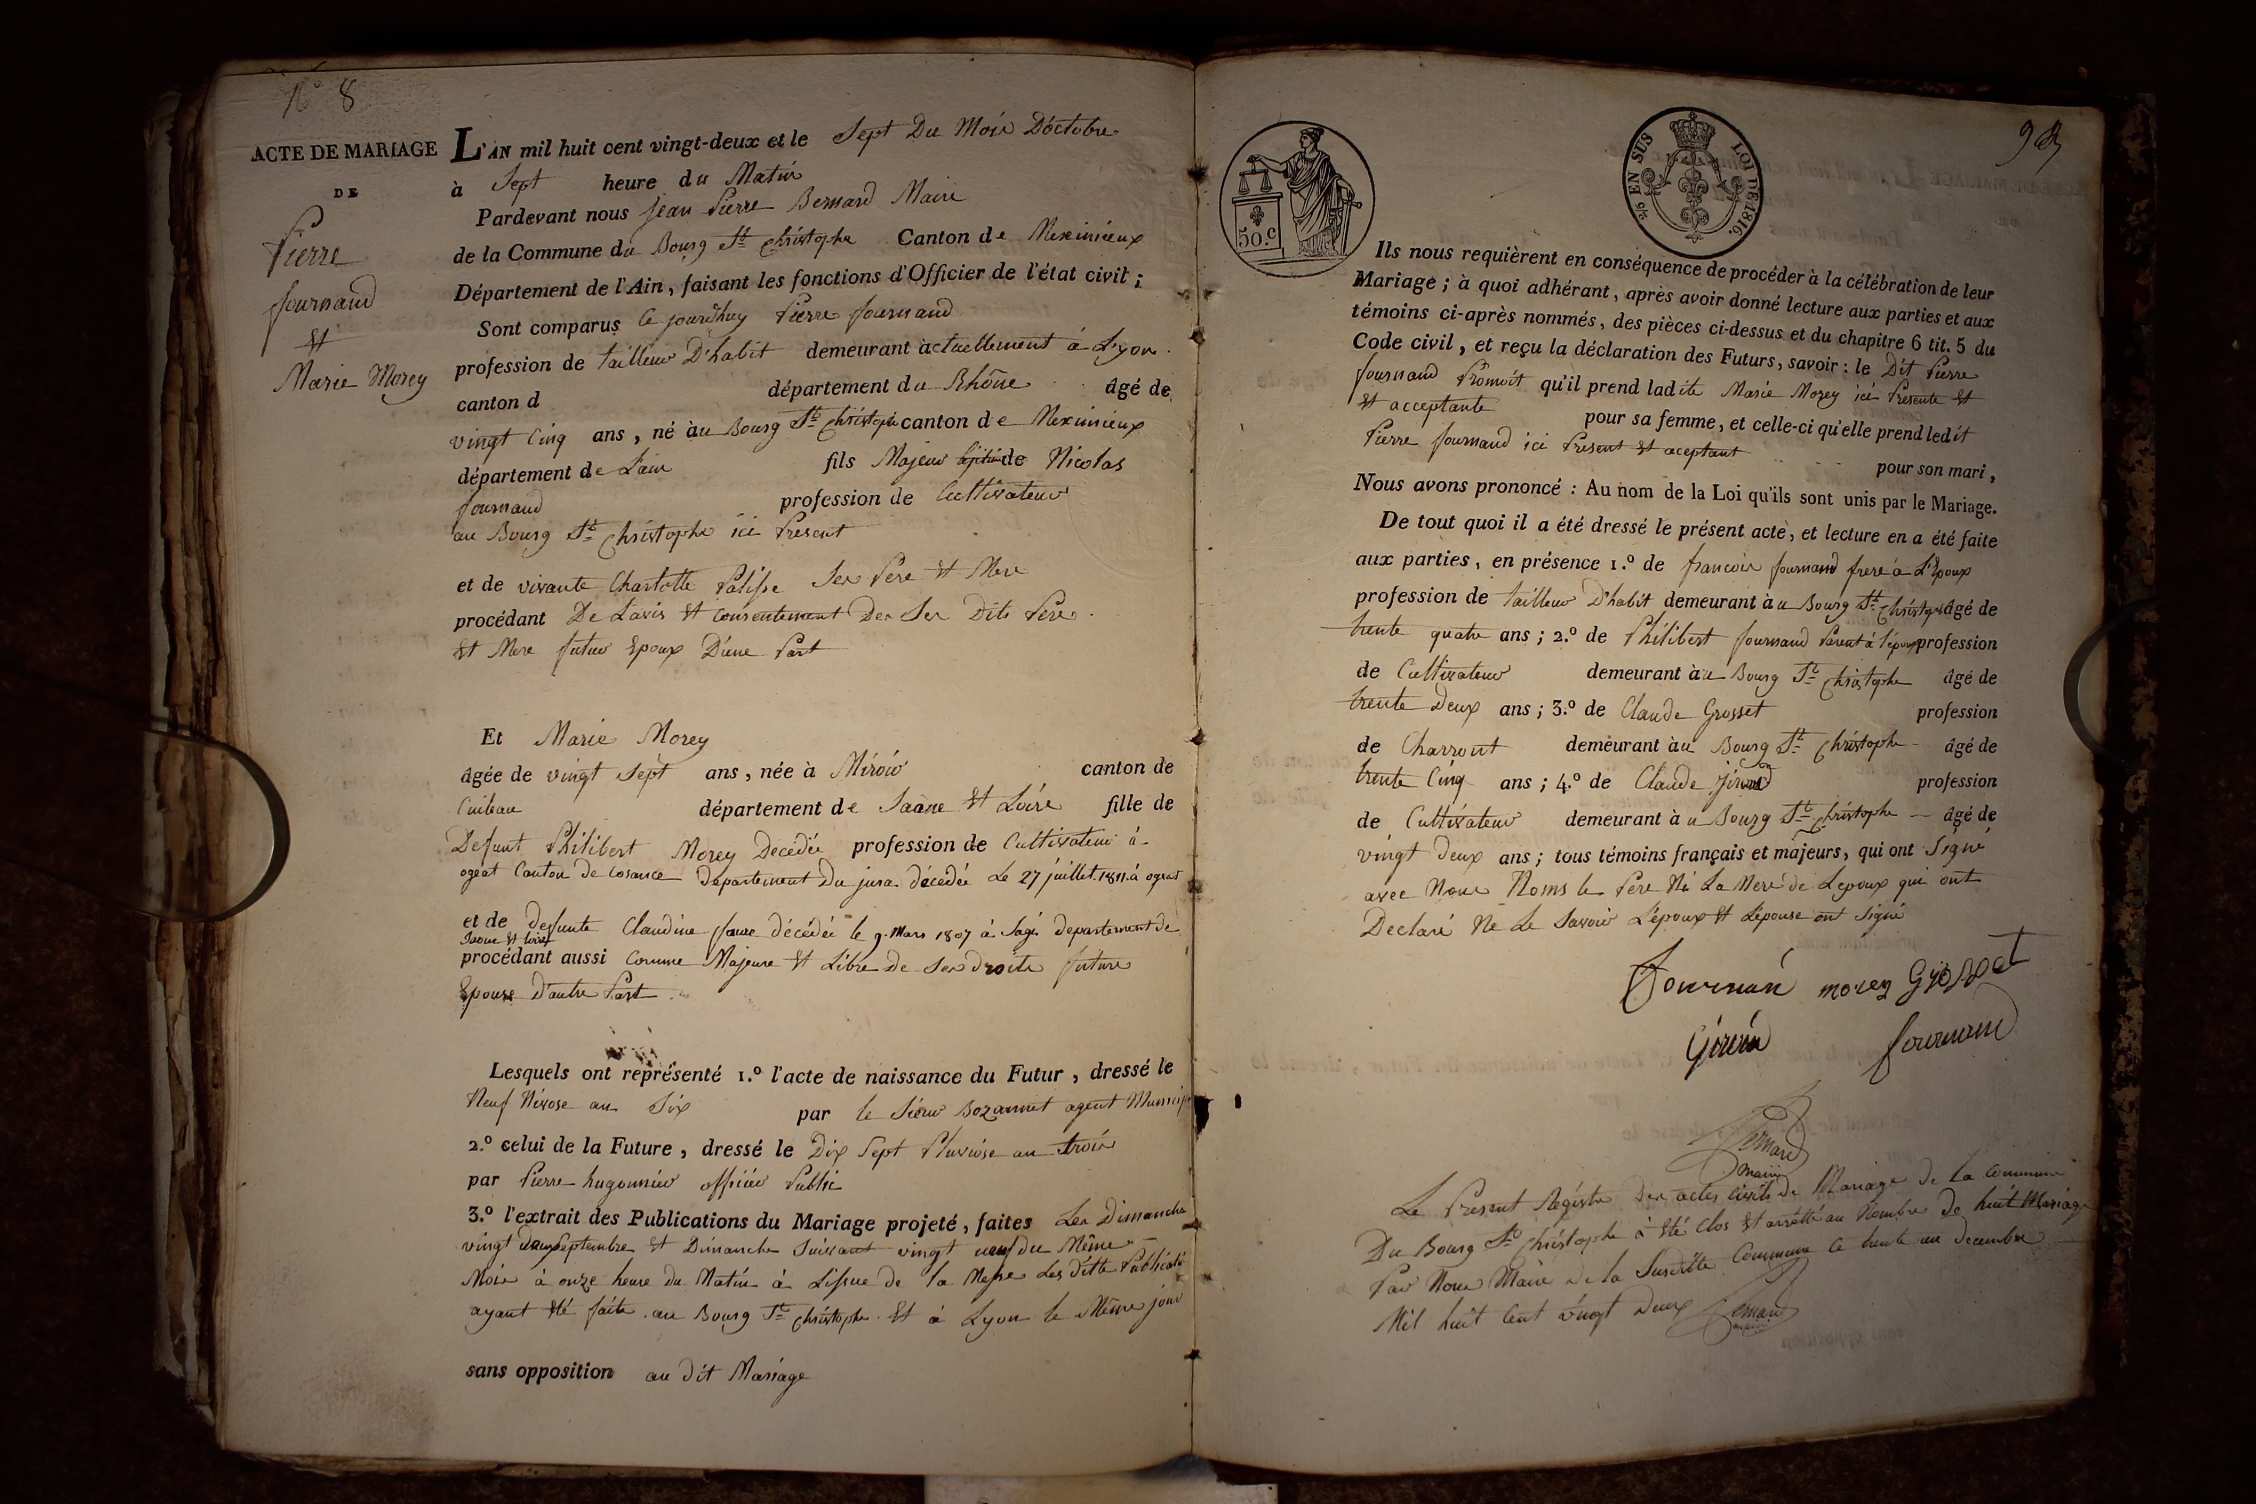 N° 8
ACTE DE MARIAGE
DE
Pierre
fournand
Et
Marie Morey
L'AN mil huit cent vingt-deux et le Sept Du Mois D'octobre
à Sept heure du Matin
Pardevant nous Jean Pierre Bernard Maire
de la Commune du Bourg St Christophe Canton de Meximieux
Département de l'Ain, faisant les fonctions d'Officier de l'état civil;
Sont comparus Ce jourdhuy Pierre fournand
profession de tailleur D'habit demeurant actuellement à Lyon
canton d département du Rhône âgé de
vingt Cinq ans, né au Bourg St Christophe canton de Meximieux
département de Lain fils Majeur de Nicolas
fournand profession de Cultivateur
au Bourg St Christophe ici Present
et de vivante Charlotte Palisse Ses Pere Et Mere
procédant De Lavis Et Consentement Des Ses Dits Pere
Et Mere futur Epoux D'une Part
Et Marie Morey
âgée de vingt Sept ans, née à Miroir canton de
Cuiseau département de Saône Et Loire fille de
Defunt Philibert Morey Decédée profession de Cultivateur à
ogeat Canton De Cosance departement Du jura décédée Le 27 juillet 1811 à ogeat
et de defunte Claudine décédée le 9 Mars 1807 à Sagi departement de
Saone Et Loire
procédant aussi Comme Majeure Et Libre De Ses droits future
Epouse D'autre Part
Lesquels ont représenté 1.º l'acte de naissance du Futur, dressé le
Neuf Nivose an Six par le Sieur Bozonnet agent Municip
2.º celui de la Future, dressé le Dix Sept Pluviose an trois
par Pierre hugonnier officier Public
3.º l'extrait des Publications du Mariage projeté, faites Les Dimanche
vingt deux Septembre Et Dimanche Suivant vingt neuf du Même
Mois à onze heure du Matin à Lissue de la Messe Les dittes Publicati
ayant été faite au Bourg St Christophe Et à Lyon le Même jour
sans opposition au dit Mariage
50.c
¼ EN SUS LOI DE 1816.
Ils nous requièrent en conséquence de procéder à la célébration de leur
Mariage; à quoi adhérant, après avoir donné lecture aux parties et aux
témoins ci-après nommés, des pièces ci-dessus et du chapitre 6 tit. 5 du
Code civil, et reçu la déclaration des Futurs, savoir: le Dit Pierre
fournand Promoit qu'il prend ladite Marie Morey ici Presente Et
Et acceptante pour sa femme, et celle-ci qu'elle prend ledit
Pierre fournand ici Present Et aceptant pour son mari,
Nous avons prononcé: Au nom de la Loi qu'ils sont unis par le Mariage.
De tout quoi il a été dressé le présent acte, et lecture en a été faite
aux parties, en présence 1.º de francois fournand frere à L'Epoux
profession de tailleur D'habit demeurant au Bourg St Christophe âgé de
trente quatre ans; 2.º de Philibert fournand Parent à l'époux profession
de Cultivateur demeurant au Bourg St Christophe âgé de
trente Deux ans; 3.º de Claude Grosset profession
de Charront demeurant au Bourg St Christophe âgé de
trente Cinq ans; 4.º de Claude profession
de Cultivateur demeurant à u Bourg St Christophe âgé de
vingt deux ans; tous témoins français et majeurs, qui ont Signé
avec Nous Noms le Pere Ni La Mere de Lepoux qui ont
Declaré Ne Le Savoir L'époux Et L'épouse ont Signé
Fournan morey Grosset
fournand
Bernard
Maire
Le Present Registre Des actes civils de Mariage de la Commune
Du Bourg St Christophe à Eté Clos Et arrêtté au Nombre de huit Mariage
Par Nous Maire De la Susditte Commune Ce trente un Decembre
Mil huit Cent vingt Deux Bernard